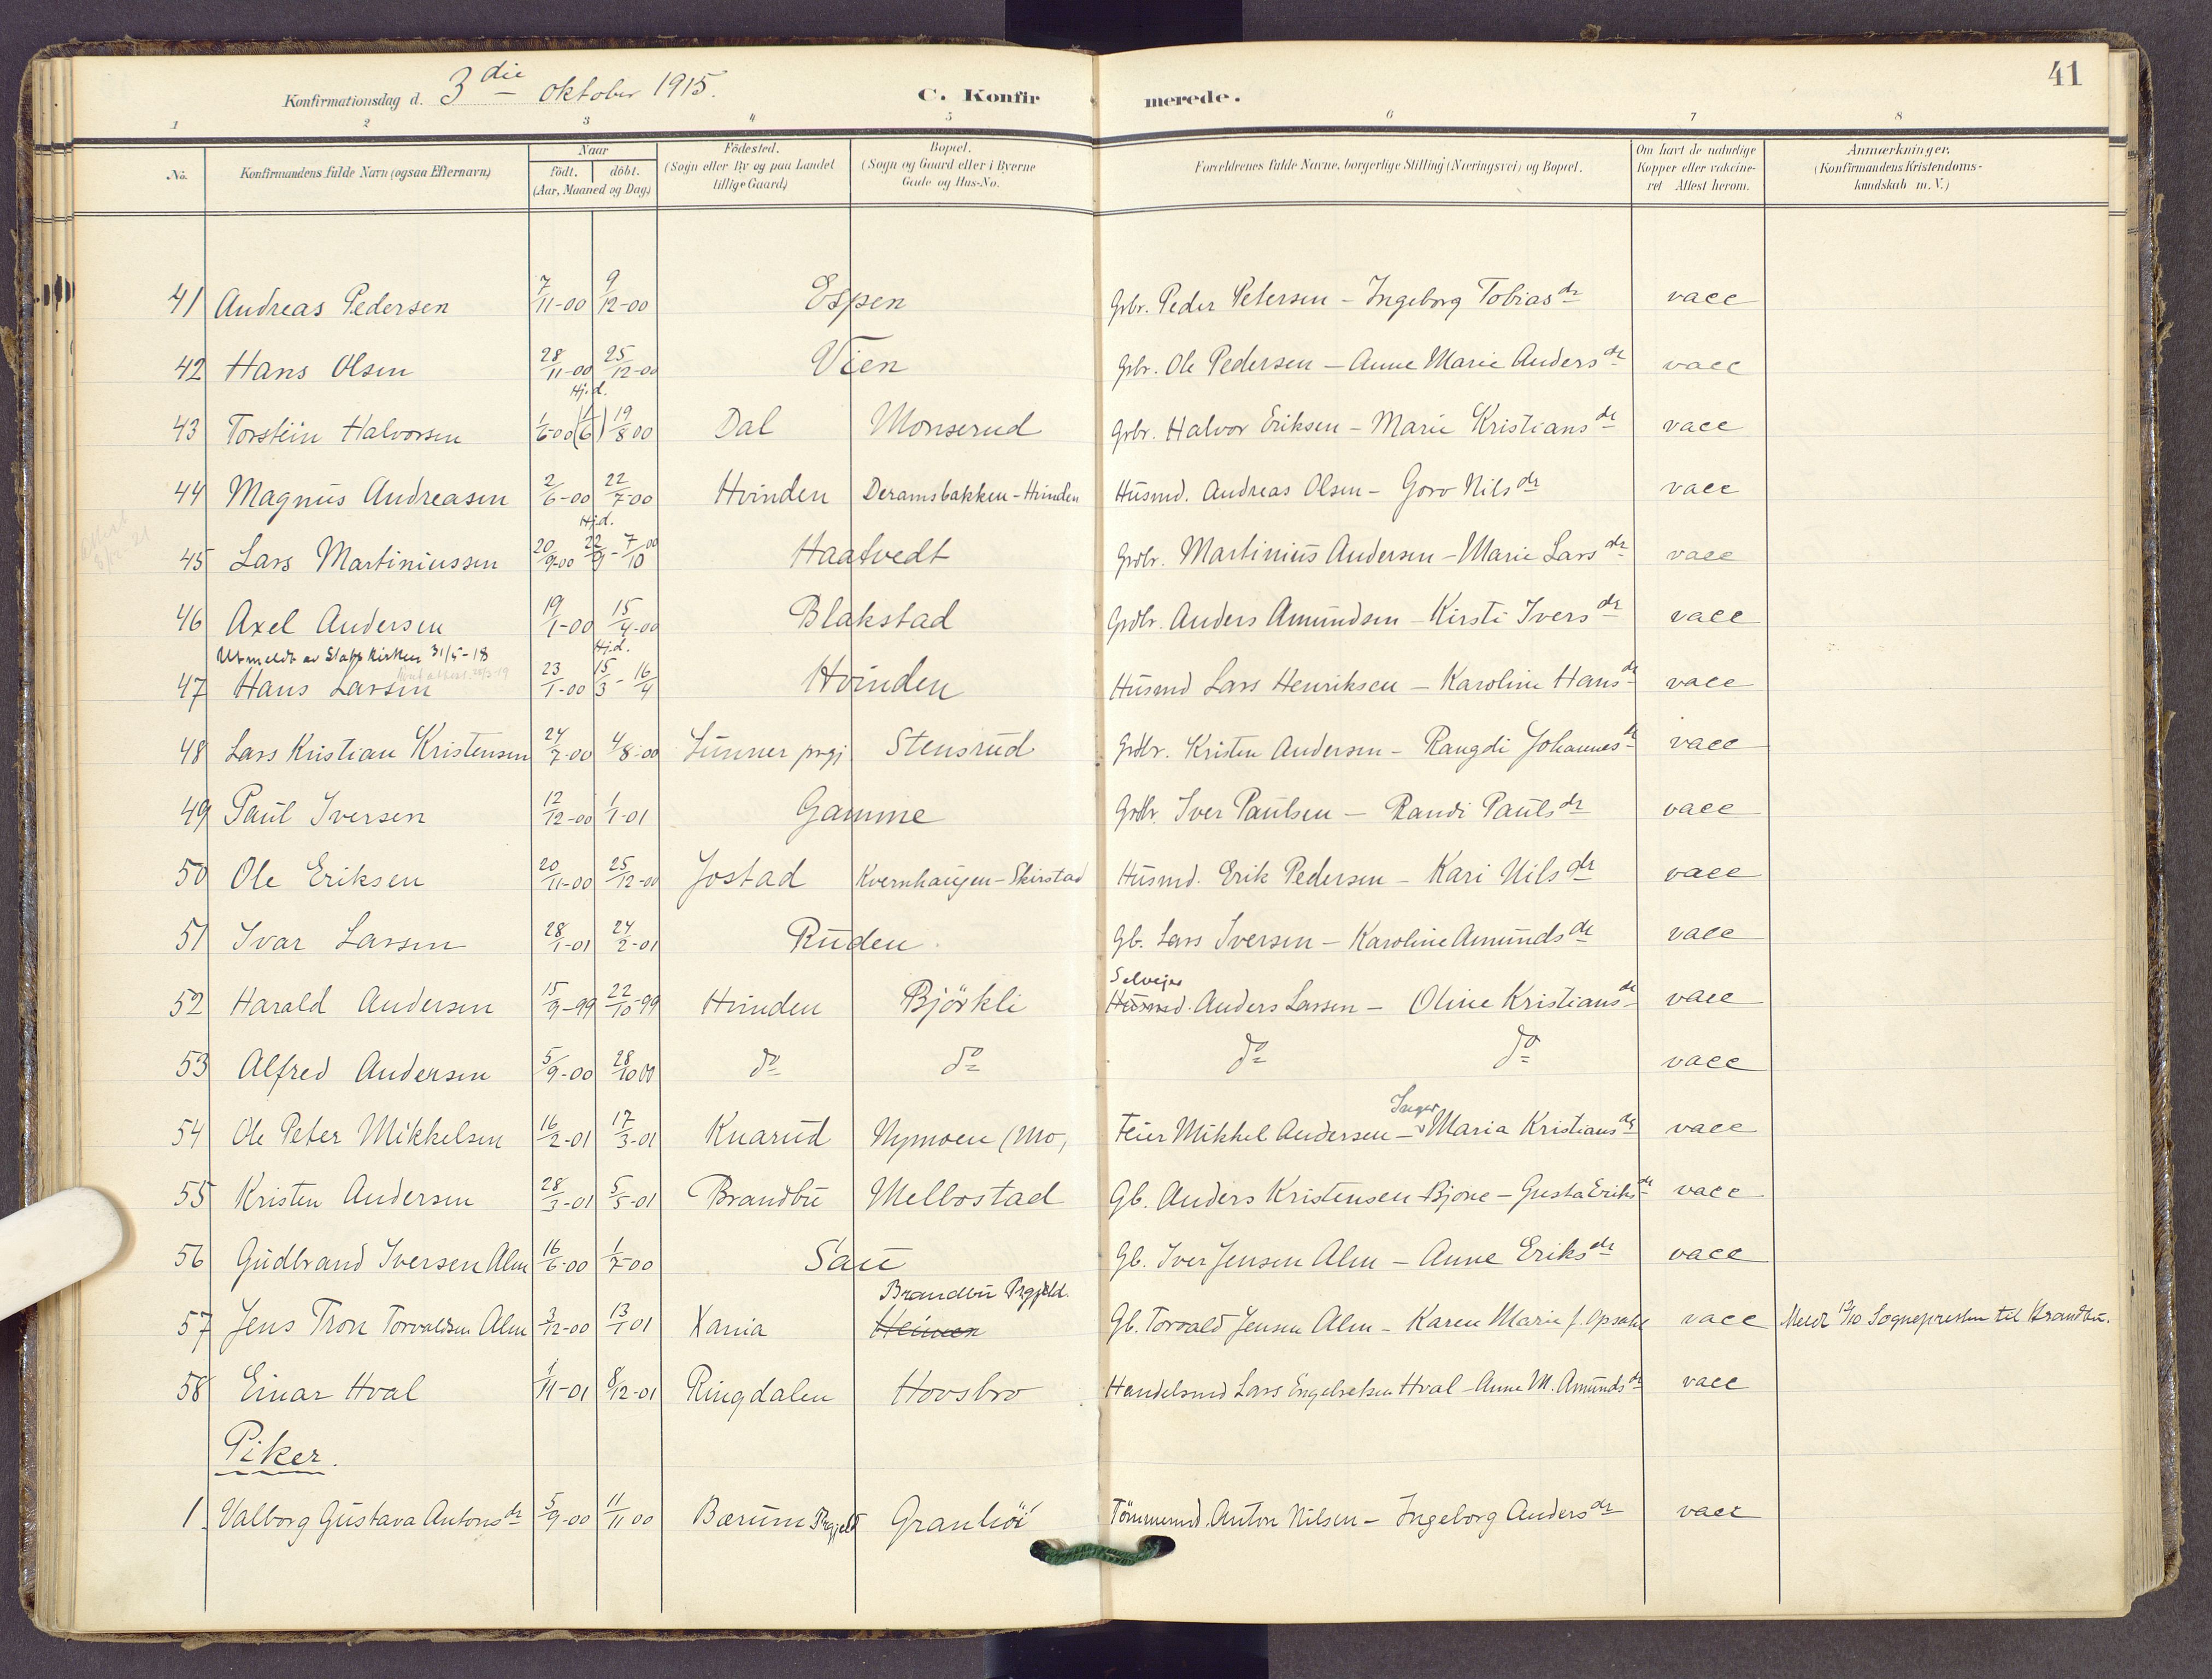 41
Konfirmationsdag d. 3die oktober 1915.
C. Konfirmerede.
1 2 3 4 5 6 7 8
No. Konfirmandens fulde Navn (ogsaa Efternavn) Naar födt. döbt. (Aar, Maaned og Dag) Födested. (Sogn eller By og paa Landet tillige Gaard) Bopæl. (Sogn og Gaard eller i Byerne Gade og Hus-No. Forældrenes fulde Navne, borgerlige Stilling (Næringsvei) og Bopæl. Om havt de naturlige Kopper eller vakcineret Attest herom. Anmærkninger. (Konfirmandens Kristendomskundskab m. V.)
41 Andreas Pedersen 7/11-00 9/12-00 Espen Grbr. Peder Petersen - Ingeborg Tobiasdr vacc
42 Hans Olsen 28/11-00 25/12-00 Vien Grbr. Ole Pedersen - Anne Marie Andersdr vacc
43 Torstein Halvorsen 1/6-00 Hj.d. (1/6) 19/8 00 Dal Monserud Grbr. Halvor Eriksen - Marie Kristiansdr vacc
44 Magnus Andreasen 2/6-00 22/7-00 Hvinden Deramsbakken-Hvinden Husmd. Andreas Olsen - Goro Nilsdr vacc
45 Lars Martiniussen 20/9-00 Hj.d. 22/9 - 7/10 00 Haatvedt Grdbr. Martinius Andersen - Marie Larsdr vacc
46 Axel Andersen 19/1-00 15/4-00 Blakstad Grdbr. Anders Amundsen - Kirsti Iversdr vacc
Utmeldt av Statskirken 31/5-18
47 Hans Larsen 23/1-00 Hj.d. 15/3 - 16/4 Hvinden Husmd Lars Henriksen - Karoline Hansdr vacc
48 Lars Kristian Kristensen 24/7-00 4/8-00 Lunner prgj Stensrud Grdbr. Kristen Andersen - Rangdi Johannesdr vacc
49 Paul Iversen 12/12-00 1/1-01 Gamme Grdbr. Iver Paulsen - Randi Paulsdr vacc
50 Ole Eriksen 20/11-00 25/12-00 Jostad Kvernhaugen-Skirstad Husmd. Erik Pedersen - Kari Nilsdr vacc
51 Ivar Larsen 28/1-01 24/2-01 Ruden. Gb. Lars Iversen - Karoline Amundsdr vacc
Selvejer
52 Harald Andersen 15/9-99 22/10-99 Hvinden Björkli Husmd. Anders Larsen - Oline Kristiansdr vacc
53 Alfred Andersen 5/9-00 28/10 00 do do do do vacc
54 Ole Peter Mikkelsen 16/2-01 17/3-01 Knarud Nymoen (Mo, Feier Mikkel Andersen - Inger Maria Kristiansdr vacc
55 Kristen Andersen 28/3-01 5/5-01 Brandbu Melbostad Gb. Anders Kristensen Bjone - Gusta Eriksdr vacc
56 Gudbrand Iversen Alm 16/6-00 1/7-00 Sau Gb. Iver Jensen Alm - Anne Eriksdr vacc
Brandbu Prgjeld.
57 Jens Tron Torvaldsen Alm 3/12-00 13/1 01 Xania Heimen Gb. Torvald Jensen Alm - Karen Marie f. Opsahl vacc Meldt 12/10 Sognepresten til Brandbu.
58 Einar Hval 1/11-01 8/12-01 Ringdalen Hovsbro Handelsmd Lars Engebretsen Hval - Anne M. Amundsdr vacc
Piker.
1. Valborg Gustava Antonsdr 5/9-00 11/11 00 Bærum Prgjeld Granhöi Tömmermd. Anton Nilsen - Ingeborg Andersdr vacc